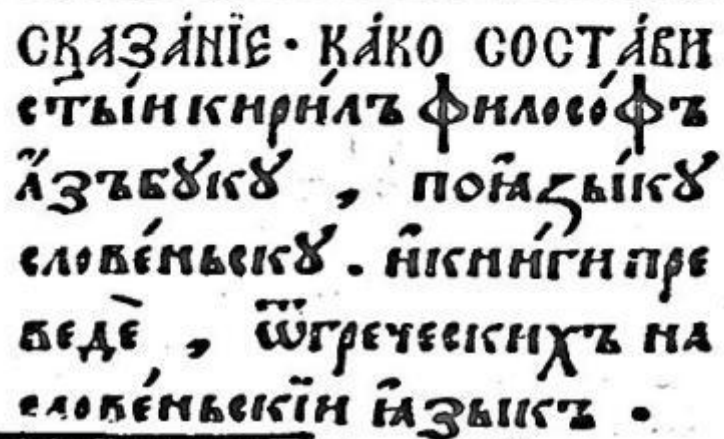 СКАЗА́НЇЕ · КА́КО СОСТА́ВИ
ст҃ы́и кири́лъ ѳилосо́фъ
а҆́зъбꙋкꙋ , поꙗ҆зы́кꙋ
слове́ньскꙋ . и҆кни́ги пре
ведѐ , ѿгреческихъ на
слове́ньскїи ꙗ҆зыкъ .